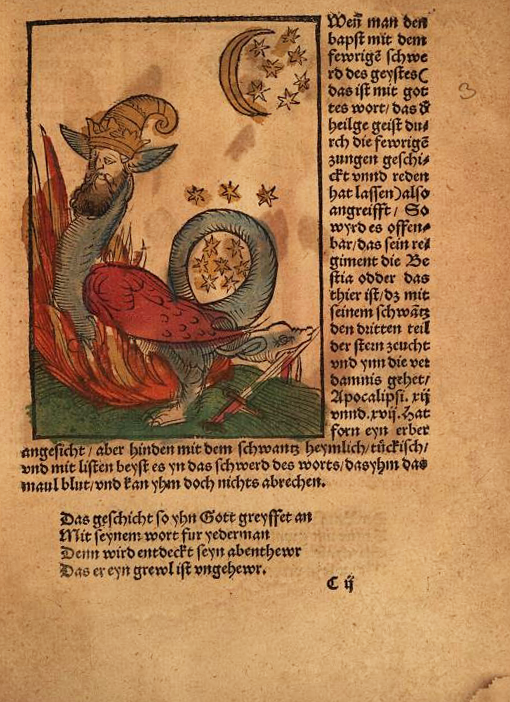 Weñ man den
bapst mit dem
fewrigẽ schwe
rd des geystes(
das ist mit got
tes wort/ das d̾
heilge geist du⸗
rch die fewrigẽ
zungen geschi⸗
ckt vnnd reden
hat lassen)also
angreifft/ So
wyrd es offen⸗
bar/das sein rei
giment die Be
stia odder das
thier ist/dz mit
seinem schwätz
den dritten teil
der stern zeucht
vnd ynn die ver
damnis gehet/
Apocalipsi. xij
vnnd.xvij.Hat
forn eyn erber
angesicht/ aber hinden mit dem schwantz heymlich/tückisch/
vnd mit listen beyst es yn das schwerd des worts/dasyhm das
maul blut/vnd kan yhm doch nichts abrechen.
Das geschicht so yhn Gott greyffet an
Mit seynem wort fur yederman
Denn wird entdeckt seyn abenthewr
Das er eyn grewl ist vngehewr.
C ij
3